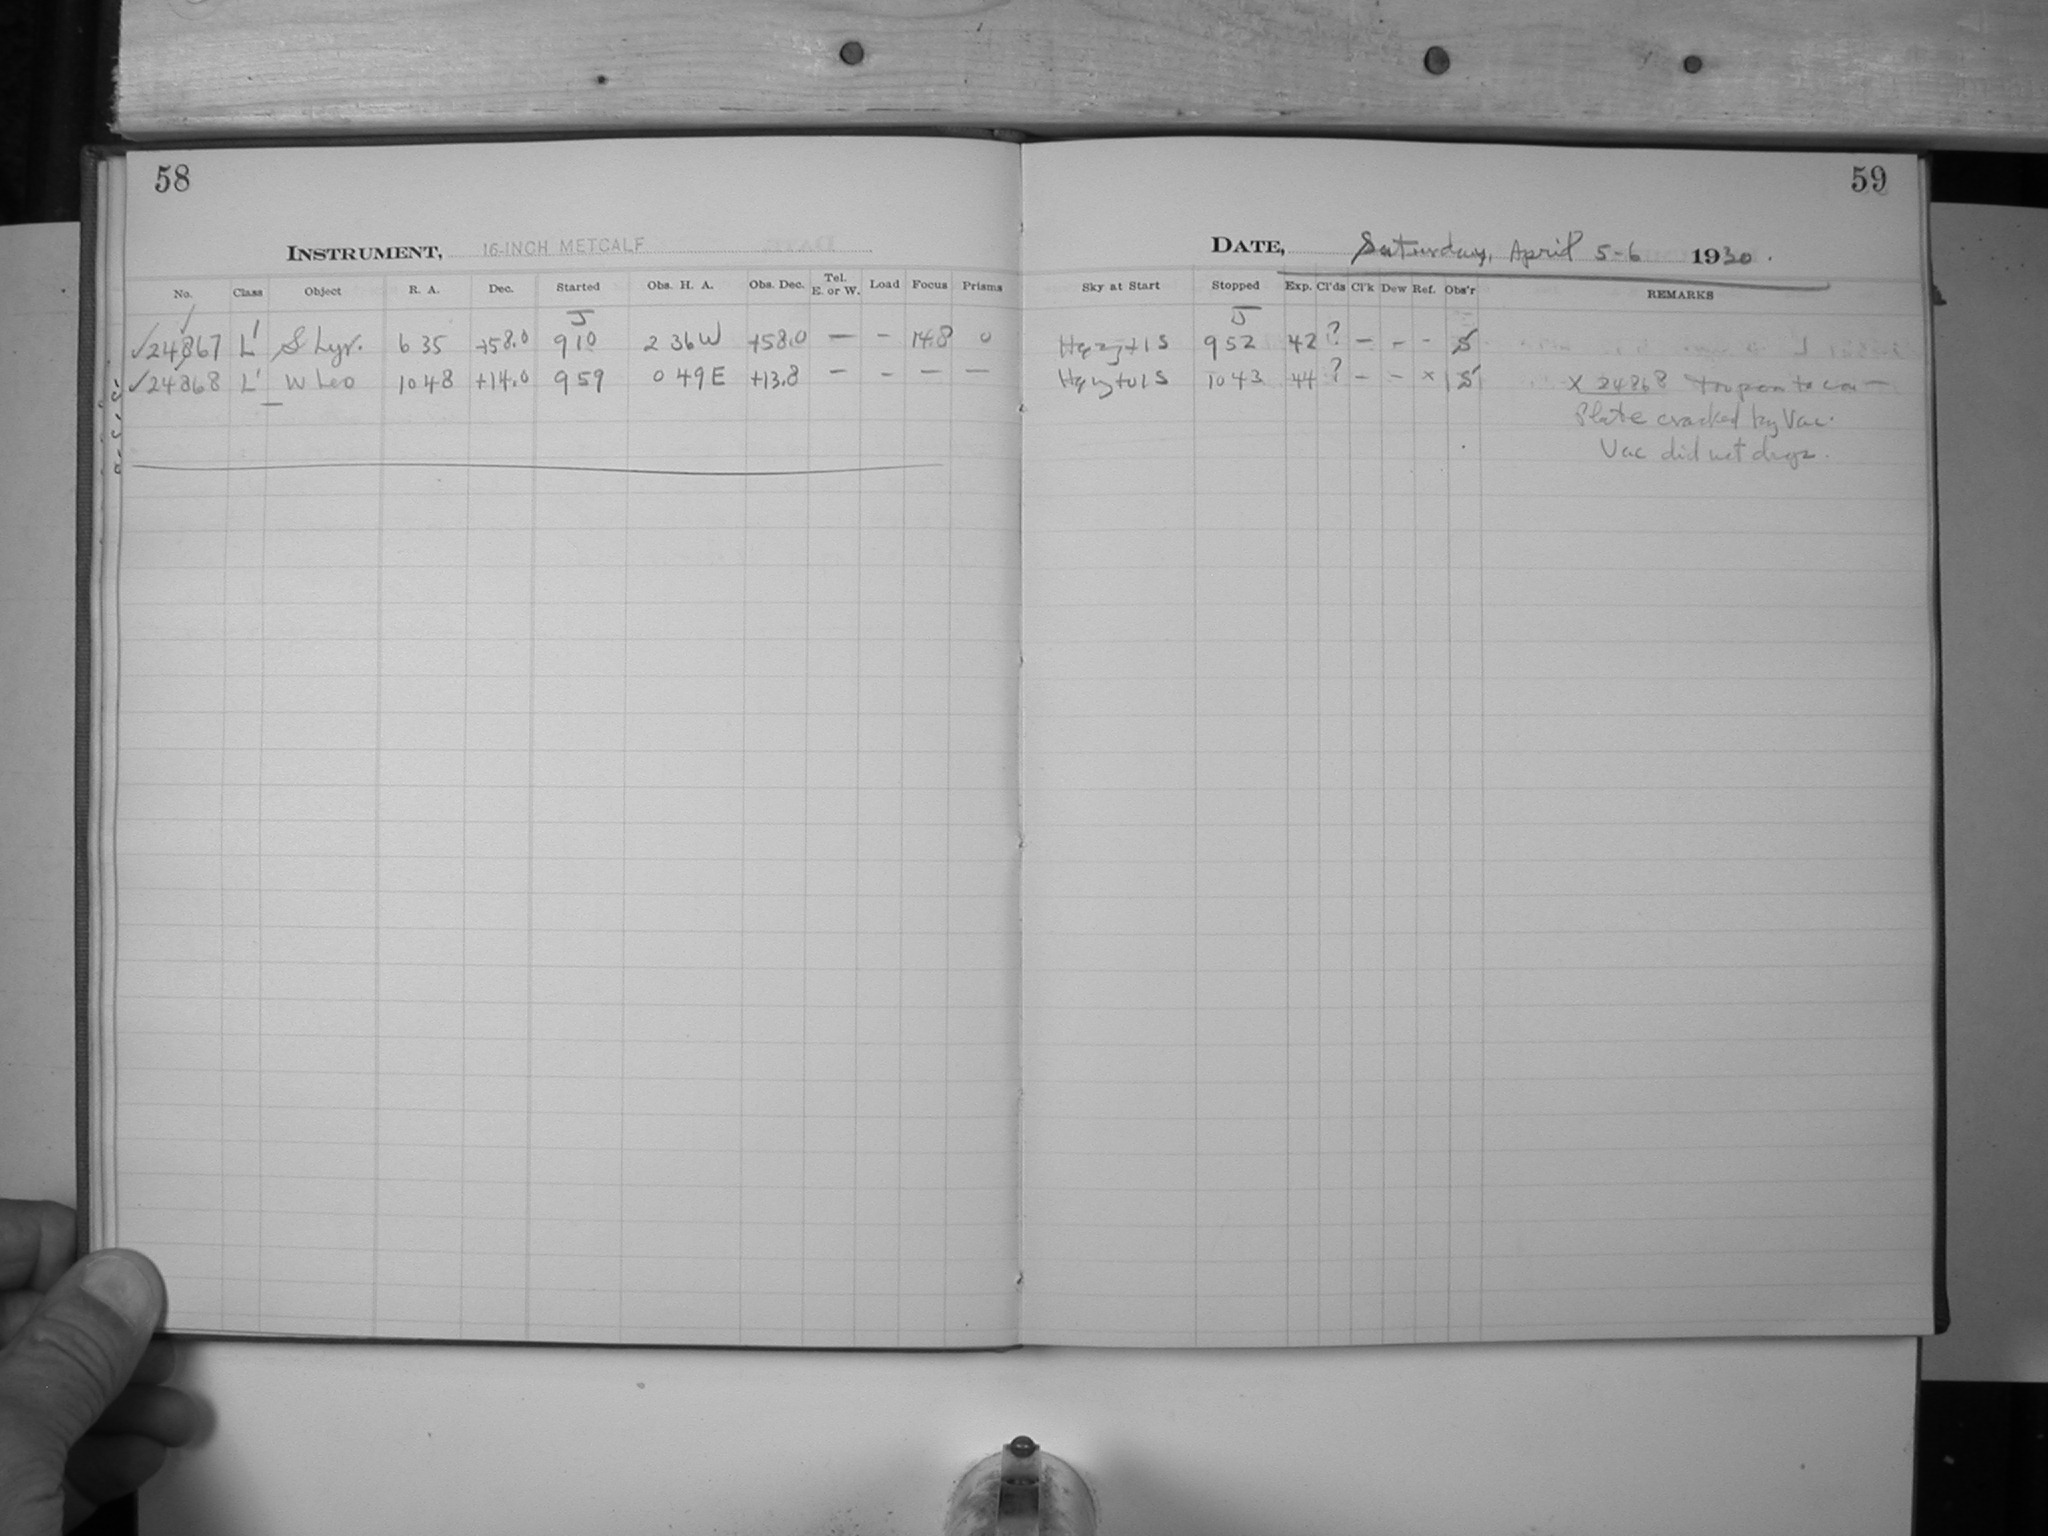 58
INSTRUMENT, 16-INCH METCALF
No. Class Object R. A. Dec. Started Obs. H. A. Obs. Dec. Tel. E. or W. Load Focus Prisms
J
✓24867 L' S Lyr. 6 35 +58.0 9 10 2 36 W +58.0 — – 14.8 0
✓24868 L' W Leo 10 48 +14.0 9 59 0 49 E +13.8 – – – —
59
DATE, Saturday, April 5-6 1930.
Sky at Start Stopped Exp. Cl'ds Cl'k Dew Ref. Obs'r REMARKS
J
1 S 9 52 42 ? – – – S
1 S 10 43 44 ? – – x S x 24868
Plate cracked by Vac.
Vac did not